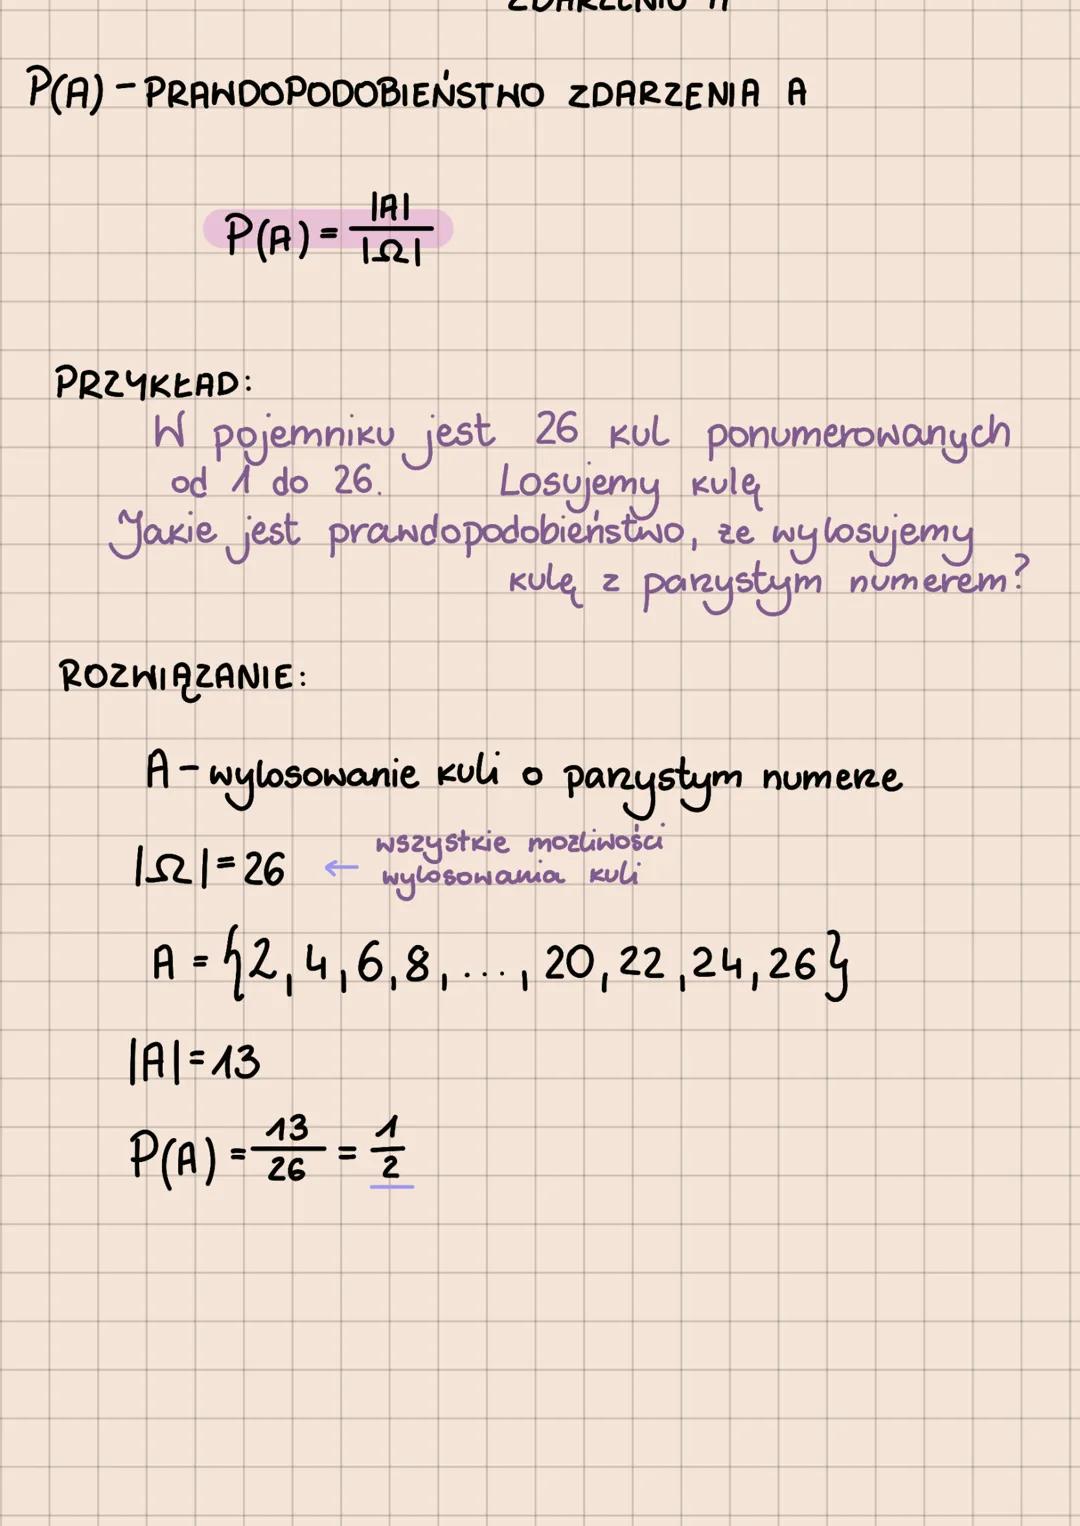 ZDARZENIU A
P(A) - PRAWDOPODOBIEŃSTWO ZDARZENIA A
P(A) = |A| / |Ω|
PRZYKŁAD:
W pojemniku jest 26 kul ponumerowanych
od 1 do 26. Losujemy kulę
Jakie jest prawdopodobieństwo, że wylosujemy
kulę z parzystym numerem?
ROZWIĄZANIE:
A - wylosowanie kuli o parzystym numerze
wszystkie możliwości
|Ω| = 26 ← wylosowania kuli
A = {2, 4, 6, 8, ..., 20, 22, 24, 26}
|A| = 13
P(A) = 13/26 = 1/2